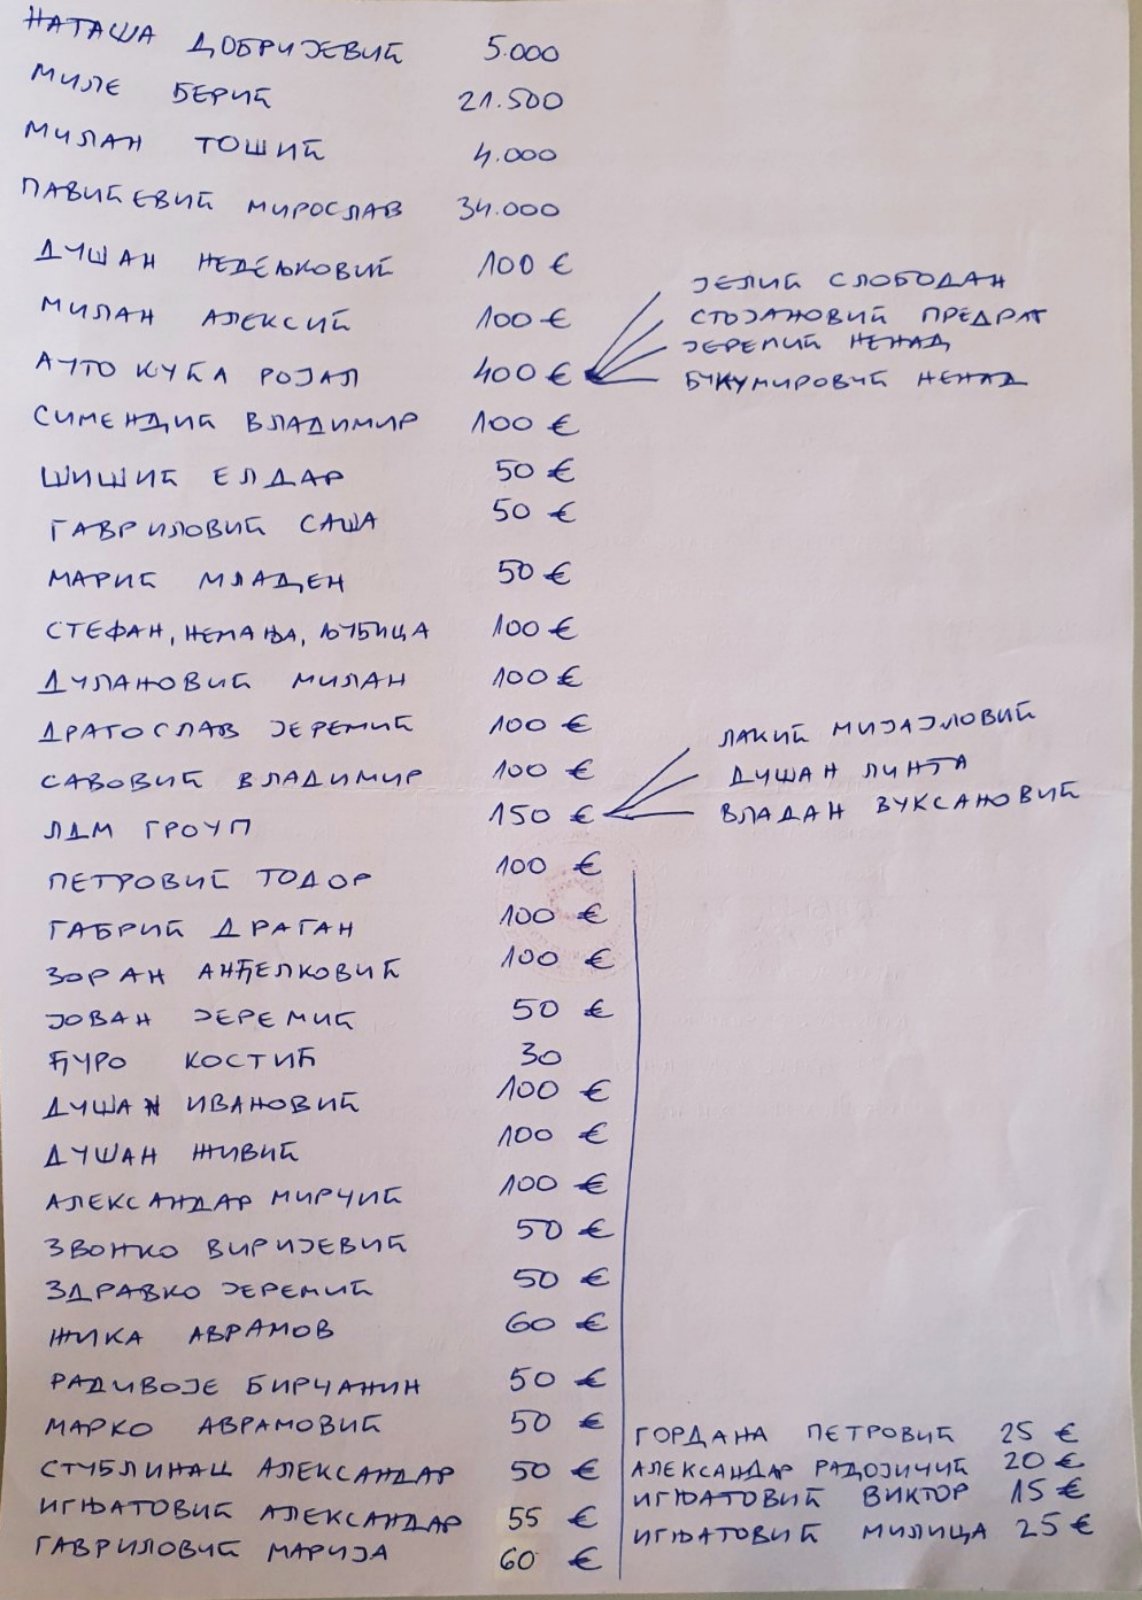 НАТАША ДОБРИЈЕВИЋ 5.000
МИЛЕ БЕРИЋ 21.500
МИЛАН ТОШИЋ 4.000
ПАВИЋЕВИЋ МИРОСЛАВ 34.000
ДУШАН НЕДЕЉКОВИЋ 100 €
МИЛАН АЛЕКСИЋ 100 €
АУТО КУЋА РОЈАЛ 400 €
ЈЕЛИЋ СЛОБОДАН
СТОЈАНОВИЋ ПРЕДРАГ
ЈЕРЕМИЋ НЕНАД
БУКУМИРОВИЋ НЕНАД
СИМЕНДИЋ ВЛАДИМИР 100 €
ШИШИЋ ЕЛДАР 50 €
ГАВРИЛОВИЋ САША 50 €
МАРИЋ МЛАДЕН 50 €
СТЕФАН, НЕМАЊА, ЉУБИЦА 100 €
ДУЛАНОВИЋ МИЛАН 100 €
ДРАГОСЛАВ ЈЕРЕМИЋ 100 €
САВОВИЋ ВЛАДИМИР 100 €
ЛДМ ГРОУП 150 €
ЛАКИЋ МИЈАЈЛОВИЋ
ДУШАН ЛИНТА
ВЛАДАН ВУКСАНОВИЋ
ПЕТРОВИЋ ТОДОР 100 €
ГАБРИЋ ДРАГАН 100 €
ЗОРАН АНЂЕЛКОВИЋ 100 €
ЈОВАН ЈЕРЕМИЋ 50 €
ЂУРО КОСТИЋ 30
ДУШАН ИВАНОВИЋ 100 €
ДУШАН ЖИВИЋ 100 €
АЛЕКСАНДАР МИРЧИЋ 100 €
ЗВОНКО ВИРИЈЕВИЋ 50 €
ЗДРАВКО ЈЕРЕМИЋ 50 €
ЖИКА АВРАМОВ 60 €
РАДИВОЈЕ БИРЧАНИН 50 €
МАРКО АВРАМОВИЋ 50 €
СТУБЛИНАЦ АЛЕКСАНДАР 50 €
ИГЊАТОВИЋ АЛЕКСАНДАР 55 €
ГАВРИЛОВИЋ МАРИЈА 60 €
ГОРДАНА ПЕТРОВИЋ 25 €
АЛЕКСАНДАР РАДОЈИЧИЋ 20 €
ИГЊАТОВИЋ ВИКТОР 15 €
ИГЊАТОВИЋ МИЛИЦА 25 €